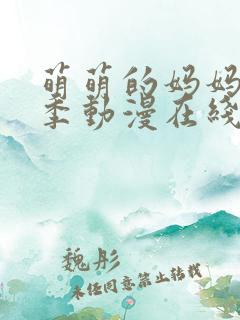 萌萌的妈妈
季動漫在綫
魏彤
未经同意禁止转载